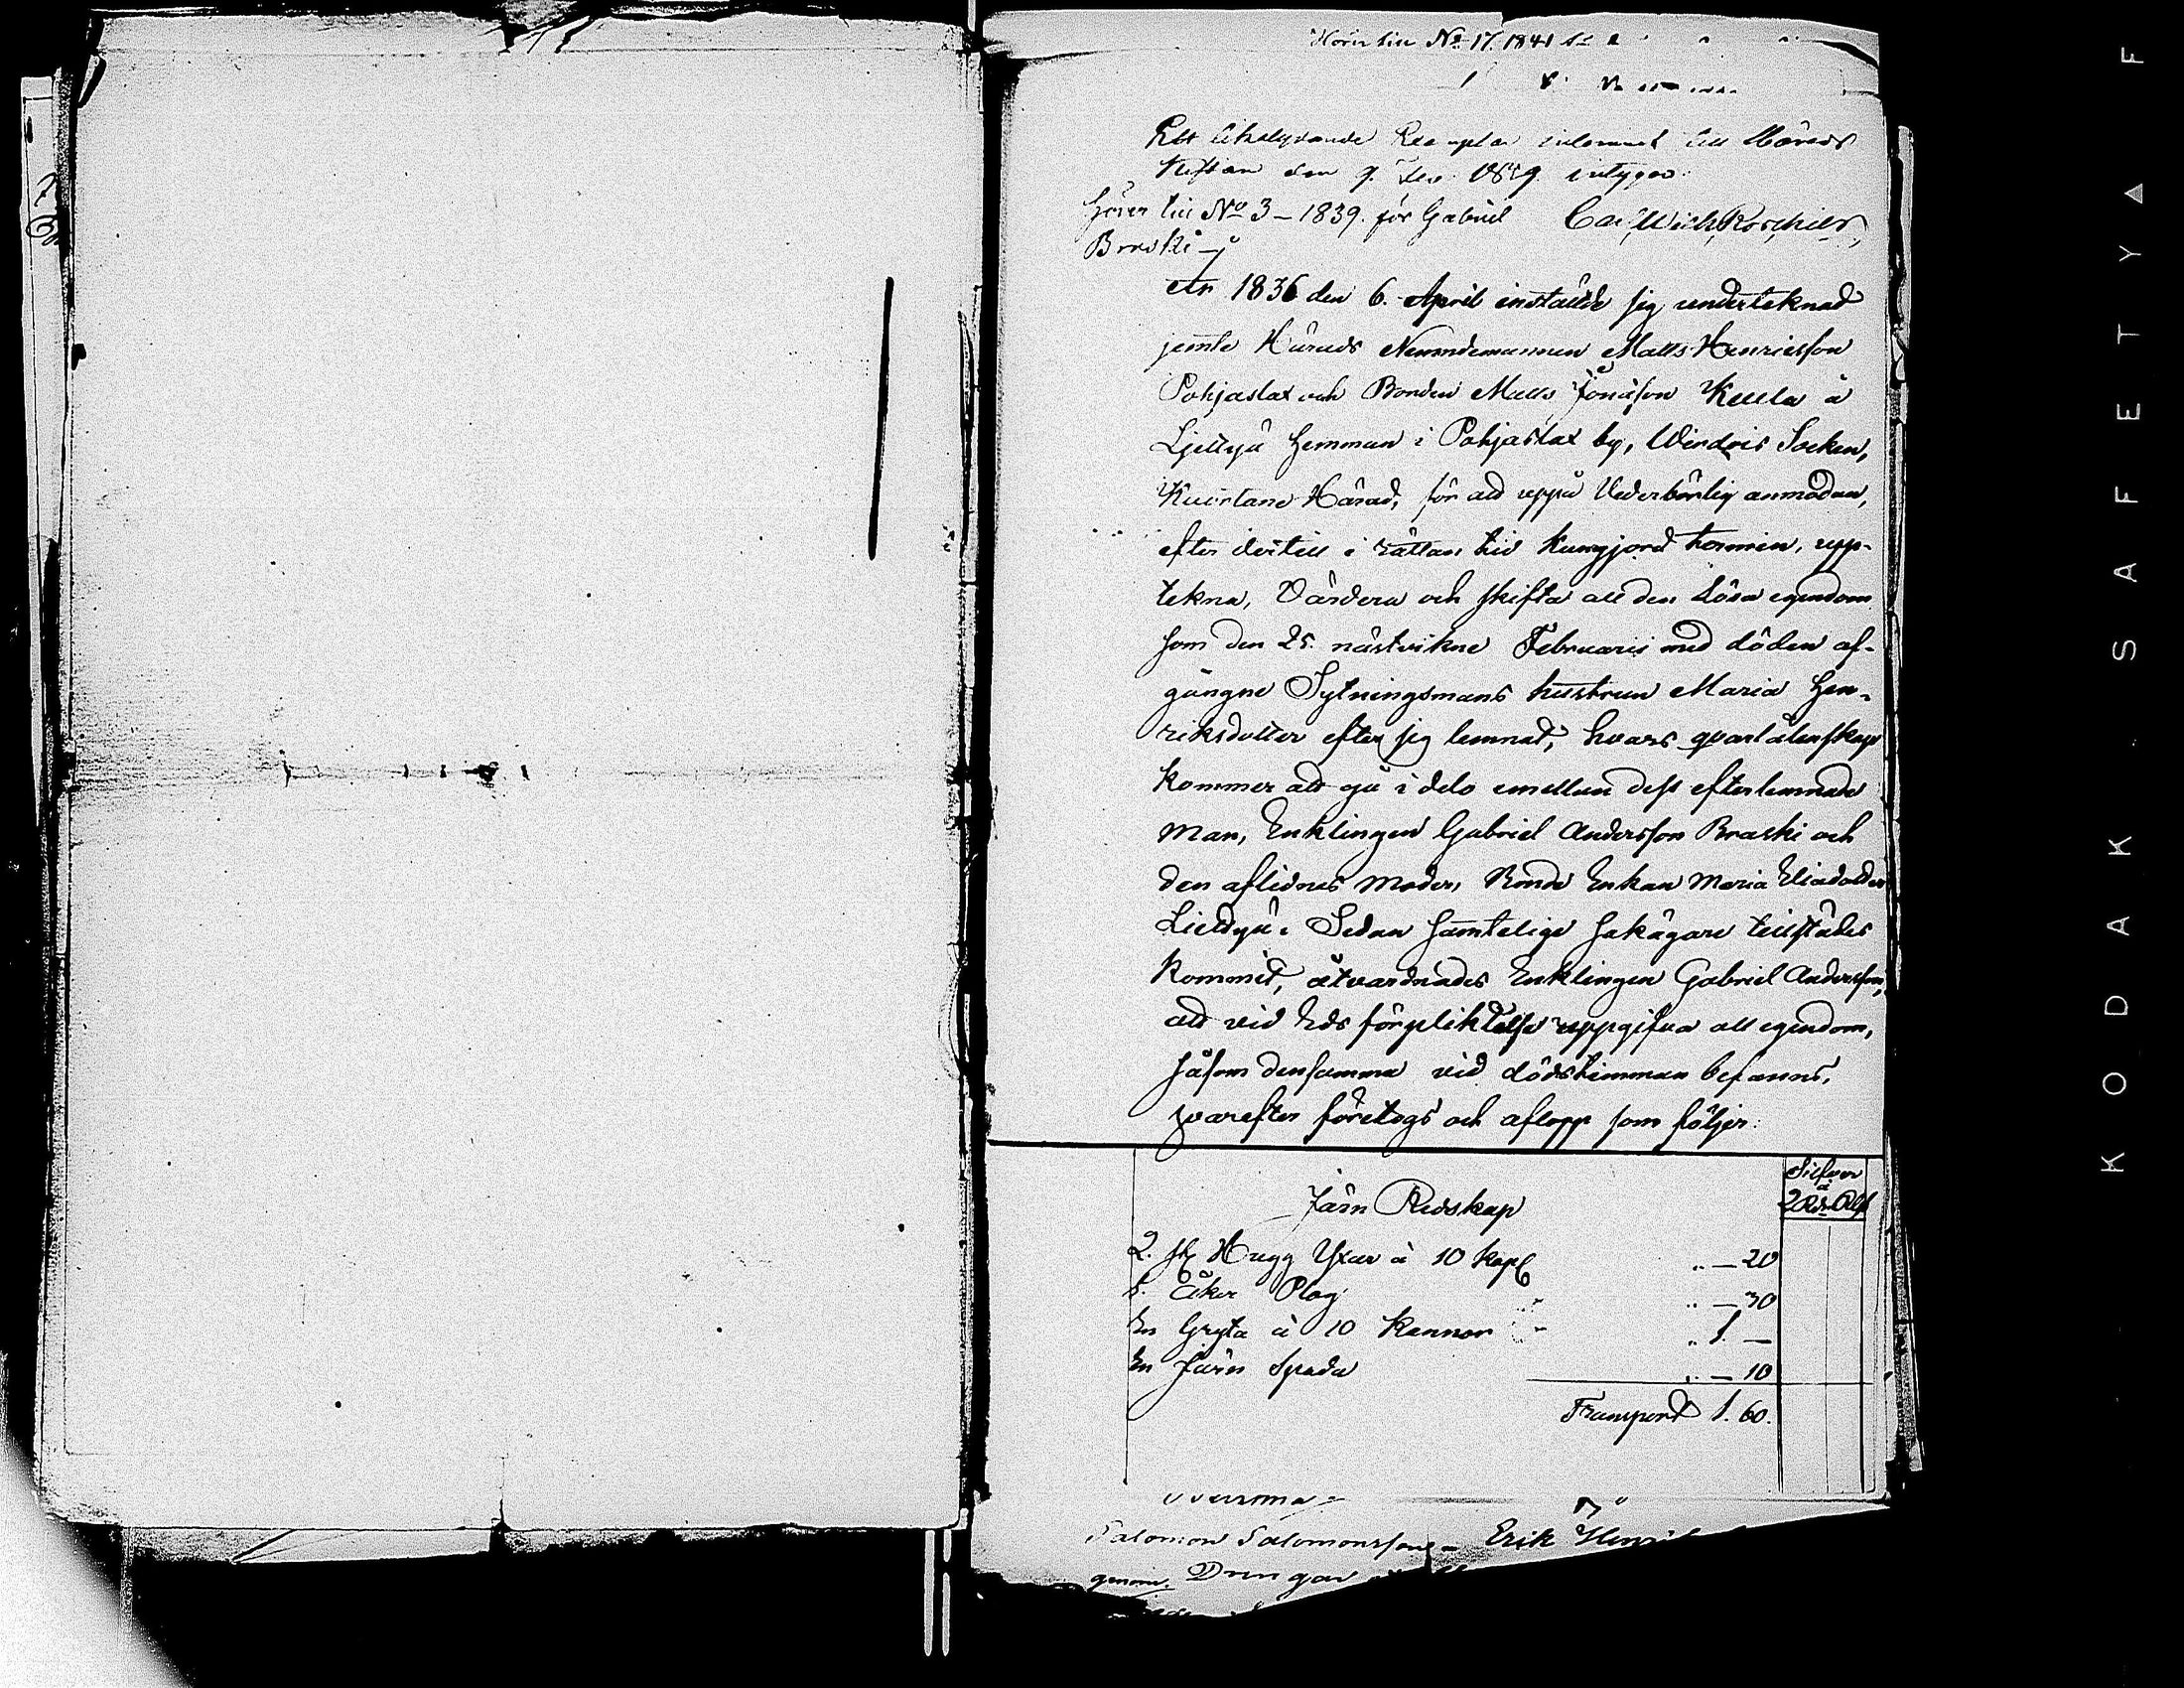 Hörer till No 17. 1841
Ett likalydande Exemplar inlemnat till Härads
Kistan den 9. 1839 intygar.
hörer till No 3 – 1839. för Gabriel
Braski
År 1836 den 6. April instälde sig undertecknad
jemte Härads Nemndemannen Matts Henricsson
Pohjaslax och Bonden Matts Jonasson Kulla å
Hemman i Pohjaslax by, Wirdois Socken,
Kuortane Härad, för att uppå Vederbörlig anmodan,
efter dertill i rättan tid Kungjord termin, upp-
tekna, Värdera och skifta all den Lösa egendom
som den 25. nästvikne Februarii med döden af-
gångne Sytningsmans hustrun Maria Hen-
riksdotter efter sig lemnat, hvars qvarlåtenskap
kommer att gå i delo emellan dess efterlemnade
Man, Enklingen Gabriel Andersson Braski och
den aflidnes Moder, Bonde Enkan Maria Eliædotter
Lieldyä. Sedan samtelige sakägare tillstädes
kommit, åtvardnades Enklingen Gabriel Andersson,
att vid Eds förpliktelse uppgifva all egendom,
såsom densamma vid dödstimman befanns,
hvarefter företogs och aflopp som följer:
Silfver
à
2 Rd. Rbl
Järn Redskap
2. st. Hugg Yxar à 10 kop „ — 20
1. Åker Plog „ — 30
En Gryta à 10 Kannor „ 1. —
En Järn Spada „ — 10
Transport 1. 60.
Salomon Salomonsson – Erik
genom. Drengar
KODAK · SAFETY ▲ F